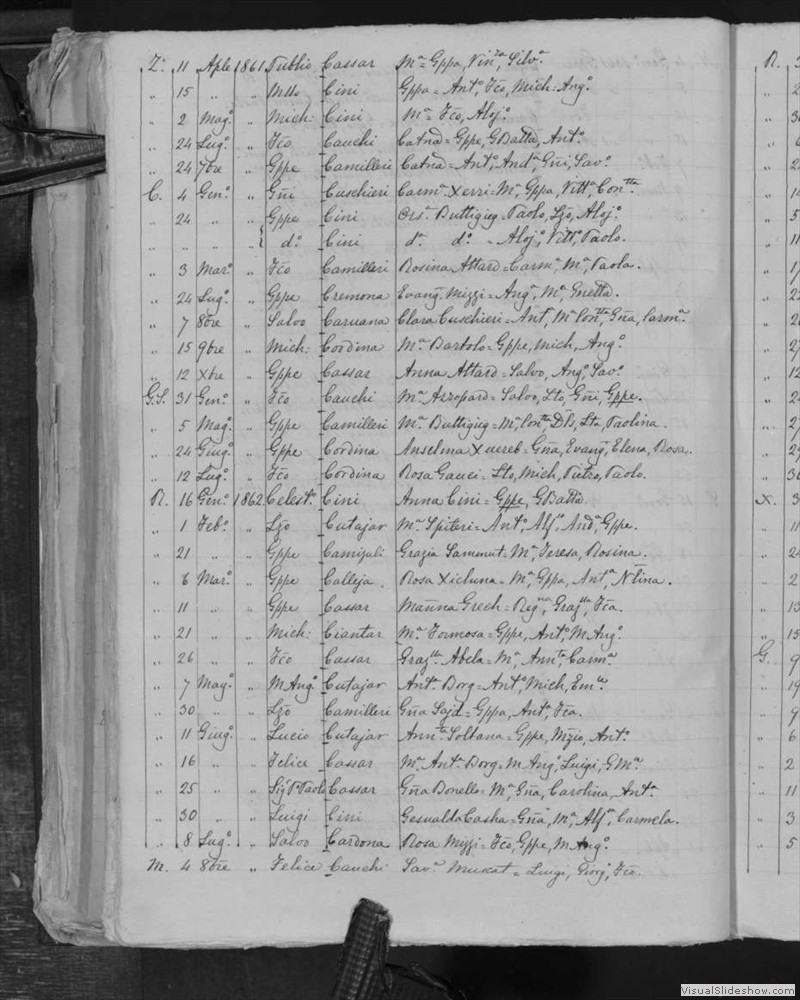 Z. 11 Aple 1861 Publio Cassar Ma = Gppa, Vinza, Silva.
" 15 " " Cini Gppa = Anto, Fco, Mich. Ango.
" 2 Mago. " Mich: Cini Ma = Fco, Aloj.
" 24 Lugo. " Fco Cauchi Catna = Gppe, GBatta, Anto.
" 24 7bre " Gppe Camilleri Catna = Anto, Anda Gni, Savo.
C. 4 Geno. " Gni Cuschieri Carma Xerri = Ma, Gppa, Vitta, Contta.
" 24 " " Gppe Cini Orsa Buttigieg = Paolo, Lzo, Aloj.
" " " " do. Cini da. do. = Aloj, Vitto, Paolo.
" 3 Maro. " Fco Camilleri Rosina Attard = Carma, Ma, Paola.
" 24 Lugo. " Gppe Cremona Evang. Mizzi = Anga, Ma, Gnetta.
" 7 8bre " Salvo Caruana Clara Cuschieri = Anta, Ma Contta, Gna, Carma.
" 15 9bre " Mich: Cordina Ma Bartolo = Gppe, Mich, Ango.
" 12 Xbre " Gppe Cassar Anna Attard = Salvo, Ango, Savo.
G.S. 31 Geno. " Fco Cauchi Ma Azzopard = Salvo, Sto, Gni, Gppe.
" 5 Mago. " Gppe Camilleri Ma Buttigieg = Ma, Contta, Sta, Paolina.
" 24 Giugo. " Gppe Cordina Anselma Xuereb = Gna, Evang, Elena, Rosa.
" 12 Lugo. " Fco Cordina Rosa Gauci = Sto, Mich, Pietro, Paolo.
R. 16 Geno. 1862 Celesto. Cini Anna Cini = Gppe, GBatta.
" 1 Febo. " Lzo Cutajar Ma Spiteri = Anto, Alfo, Anda, Gppe.
" 21 " " Gppe Camizuli Grazia Sammut = Ma, Teresa, Rosina.
" 6 Maro. " Gppe Calleja Rosa Xicluna = Ma, Gppa, Anta, Ntina.
" 11 " " Gppe Cassar Manna Grech = Regna, Grajtta, Fca.
" 21 " " Mich: Ciantar Ma Formosa = Gppe, Anto, MAngo.
" 26 " " Fco Cassar Grajtta Abela = Ma, Annta, Carma.
" 7 Mago. " MAngo. Cutajar Anta Borg = Anto, Mich, Emle.
" 30 " " Lzo Camilleri Gna Sajd = Gppa, Anta, Fca.
" 11 Giugo. " Lucio Cutajar Annta Soltana = Gppe, Nzio, Anto.
" 16 " " Felice Cassar Ma Anta Borg = MAngo, Luigi, GMa.
" 25 " " Sigr Paolo Cassar Gna Bonello = Ma, Gna, Carolina, Anta.
" 30 " " Luigi Cini Gesualda Casha = Gna, Ma, Alfa, Carmela.
" 8 Lugo. " Salvo Cardona Rosa Mizzi = Fco, Gppe, MAngo.
M. 4 8bre " Felice Cauchi Sava Muscat = Luigi, Giorg, Fco.
R.
X. 3
G. 9
VisualSlideshow.com